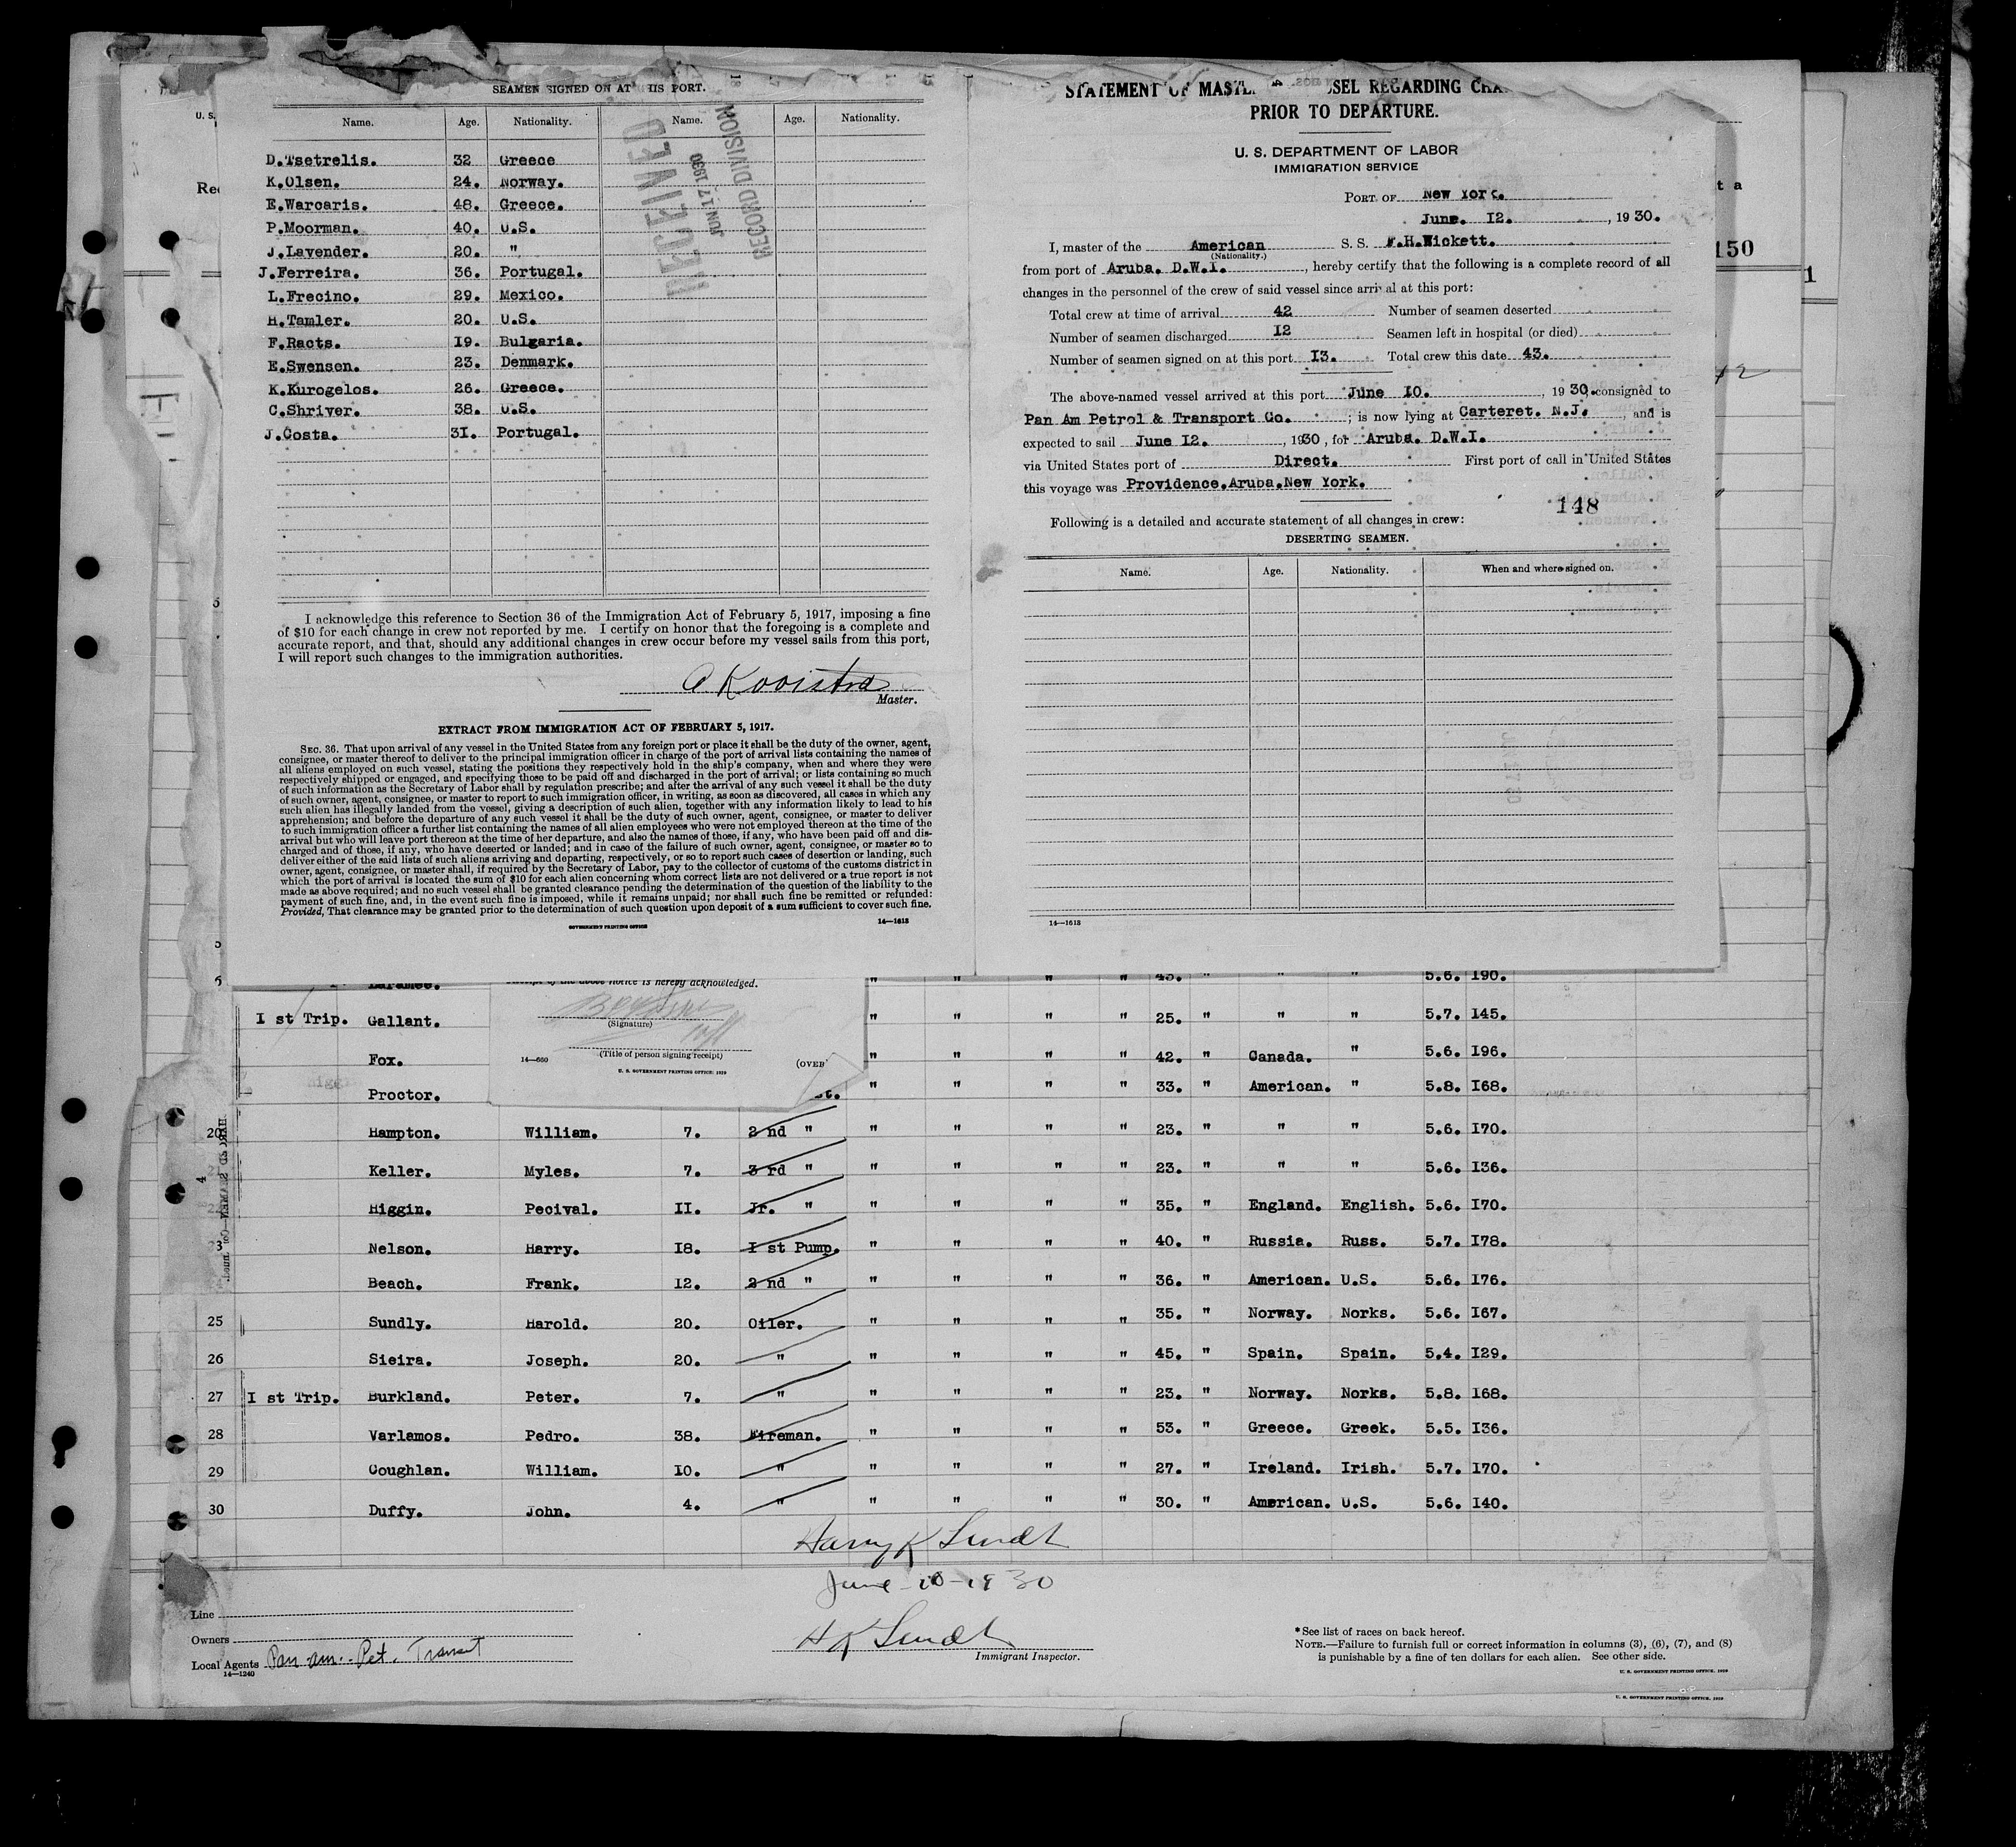 SEAMEN SIGNED ON AT THIS PORT.
Name. Age. Nationality. Name. Age. Nationality.
D.Tsetrelis. 32 Greece
K.Olsen. 24. Norway.
E.Warcaris. 48. Greece.
P.Moorman. 40. U.S.
J.Lavender. 20. "
J.Ferreira. 36. Portugal.
L.Frecino. 29. Mexico.
H.Tamler. 20. U.S.
F.Racts. 19. Bulgaria.
E.Swensen. 23. Denmark.
K.Kurogelos. 26. Greece.
C.Shriver. 38. U.S.
J.Costa. 31. Portugal.
RECEIVED
JUN 17 1930
RECORD DIVISION
I acknowledge this reference to Section 36 of the Immigration Act of February 5, 1917, imposing a fine
of $10 for each change in crew not reported by me. I certify on honor that the foregoing is a complete and
accurate report, and that, should any additional changes in crew occur before my vessel sails from this port,
I will report such changes to the immigration authorities.
A Kooistra
Master.
EXTRACT FROM IMMIGRATION ACT OF FEBRUARY 5, 1917.
SEC. 36. That upon arrival of any vessel in the United States from any foreign port or place it shall be the duty of the owner, agent,
consignee, or master thereof to deliver to the principal immigration officer in charge of the port of arrival lists containing the names of
all aliens employed on such vessel, stating the positions they respectively hold in the ship's company, when and where they were
respectively shipped or engaged, and specifying those to be paid off and discharged in the port of arrival; or lists containing so much
of such information as the Secretary of Labor shall by regulation prescribe; and after the arrival of any such vessel it shall be the duty
of such owner, agent, consignee, or master to report to such immigration officer, in writing, as soon as discovered, all cases in which any
such alien has illegally landed from the vessel, giving a description of such alien, together with any information likely to lead to his
apprehension; and before the departure of any such vessel it shall be the duty of such owner, agent, consignee, or master to deliver
to such immigration officer a further list containing the names of all alien employees who were not employed thereon at the time of the
arrival but who will leave port thereon at the time of her departure, and also the names of those, if any, who have been paid off and dis-
charged and of those, if any, who have deserted or landed; and in case of the failure of such owner, agent, consignee, or master so to
deliver either of the said lists of such aliens arriving and departing, respectively, or so to report such cases of desertion or landing, such
owner, agent, consignee, or master shall, if required by the Secretary of Labor, pay to the collector of customs of the customs district in
which the port of arrival is located the sum of $10 for each alien concerning whom correct lists are not delivered or a true report is not
made as above required; and no such vessel shall be granted clearance pending the determination of the question of the liability to the
payment of such fine, and, in the event such fine is imposed, while it remains unpaid; nor shall such fine be remitted or refunded:
Provided, That clearance may be granted prior to the determination of such question upon deposit of a sum sufficient to cover such fine.
GOVERNMENT PRINTING OFFICE 14—1613
STATEMENT OF MASTER VESSEL REGARDING
PRIOR TO DEPARTURE.
U. S. DEPARTMENT OF LABOR
IMMIGRATION SERVICE
PORT OF New York.
June. 12. , 1930.
I, master of the American S. S. F.H.Wickett.
(Nationality.)
from port of Aruba. D.W.I. , hereby certify that the following is a complete record of all
changes in the personnel of the crew of said vessel since arrival at this port:
Total crew at time of arrival 42 Number of seamen deserted
Number of seamen discharged 12 Seamen left in hospital (or died)
Number of seamen signed on at this port 13. Total crew this date 43.
The above-named vessel arrived at this port June 10. , 1930, consigned to
Pan Am Petrol & Transport Co. ; is now lying at Carteret. N.J. , and is
expected to sail June 12. , 1930, for Aruba. D.W.I.
via United States port of Direct. First port of call in United States
this voyage was Providence.Aruba.New York.
148
Following is a detailed and accurate statement of all changes in crew:
DESERTING SEAMEN.
Name. Age. Nationality. When and where signed on.
14—1613
150
1
U. S.
Laramee. " " " " 45. " " " 5.6. 190.
Receipt of the above notice is hereby acknowledged.
(Signature)
(Title of person signing receipt)
14—660 (OVER
U. S. GOVERNMENT PRINTING OFFICE: 1929
1 st Trip. Gallant. " " " " 25. " " " 5.7. 145.
Fox. " " " " 42. " Canada. " 5.6. 196.
Proctor. " " " " 33. " American. " 5.8. 168.
20 Hampton. William. 7. 2 nd " " " " " 23. " " " 5.6. 170.
Keller. Myles. 7. 3 rd " " " " " 23. " " " 5.6. 136.
Higgin. Pecival. 11. Jr. " " " " " 35. " England. English. 5.6. 170.
Nelson. Harry. 18. 1 st Pump. " " " " 40. " Russia. Russ. 5.7. 178.
Beach. Frank. 12. 2 nd " " " " " 36. " American. U.S. 5.6. 176.
25 Sundly. Harold. 20. Oiler. " " " " 35. " Norway. Norks. 5.6. 167.
26 Sieira. Joseph. 20. " " " " " 45. " Spain. Spain. 5.4. 129.
27 1 st Trip. Burkland. Peter. 7. " " " " " 23. " Norway. Norks. 5.8. 168.
28 Varlamos. Pedro. 38. Fireman. " " " " 53. " Greece. Greek. 5.5. 136.
29 Coughlan. William. 10. " " " " " 27. " Ireland. Irish. 5.7. 170.
30 Duffy. John. 4. " " " " " 30. " American. U.S. 5.6. 140.
Harry K Lundt
June-10-1930
H K Lundt
Immigrant Inspector.
Line
Owners
Local Agents Pan am. Pet. Transit
14—1240
*See list of races on back hereof.
NOTE.—Failure to furnish full or correct information in columns (3), (6), (7), and (8)
is punishable by a fine of ten dollars for each alien. See other side.
U. S. GOVERNMENT PRINTING OFFICE. 1929
U. S. GOVERNMENT PRINTING OFFICE. 1929